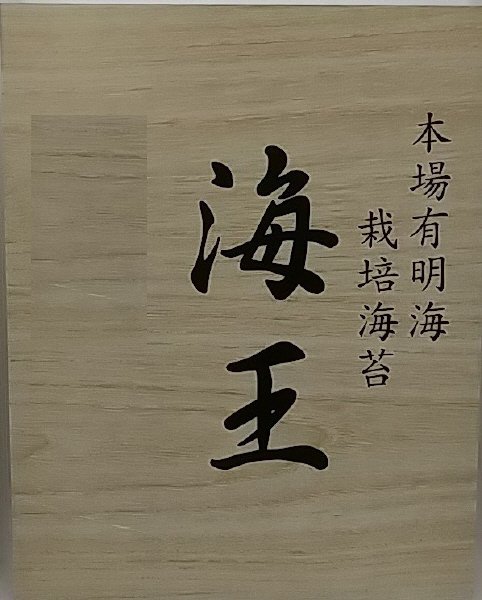 本場有明海
栽培海苔
海王